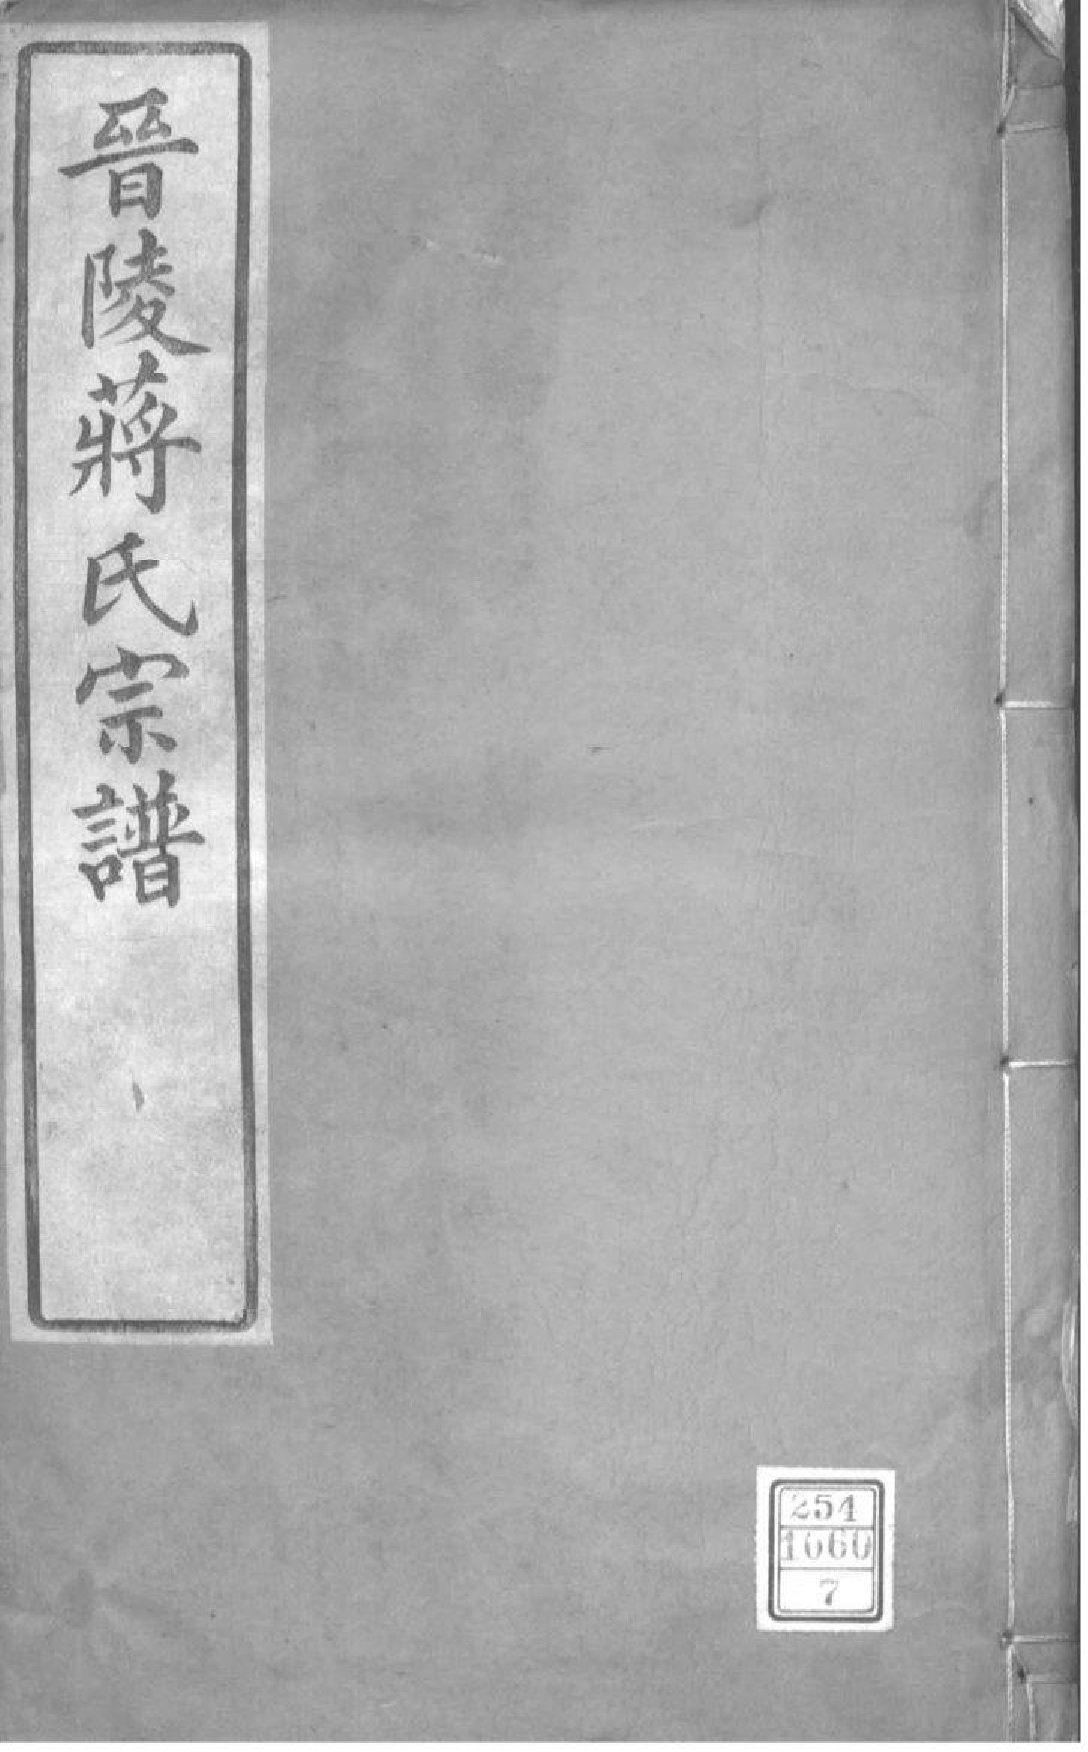 晉陵蔣氏宗譜
254
1060
7